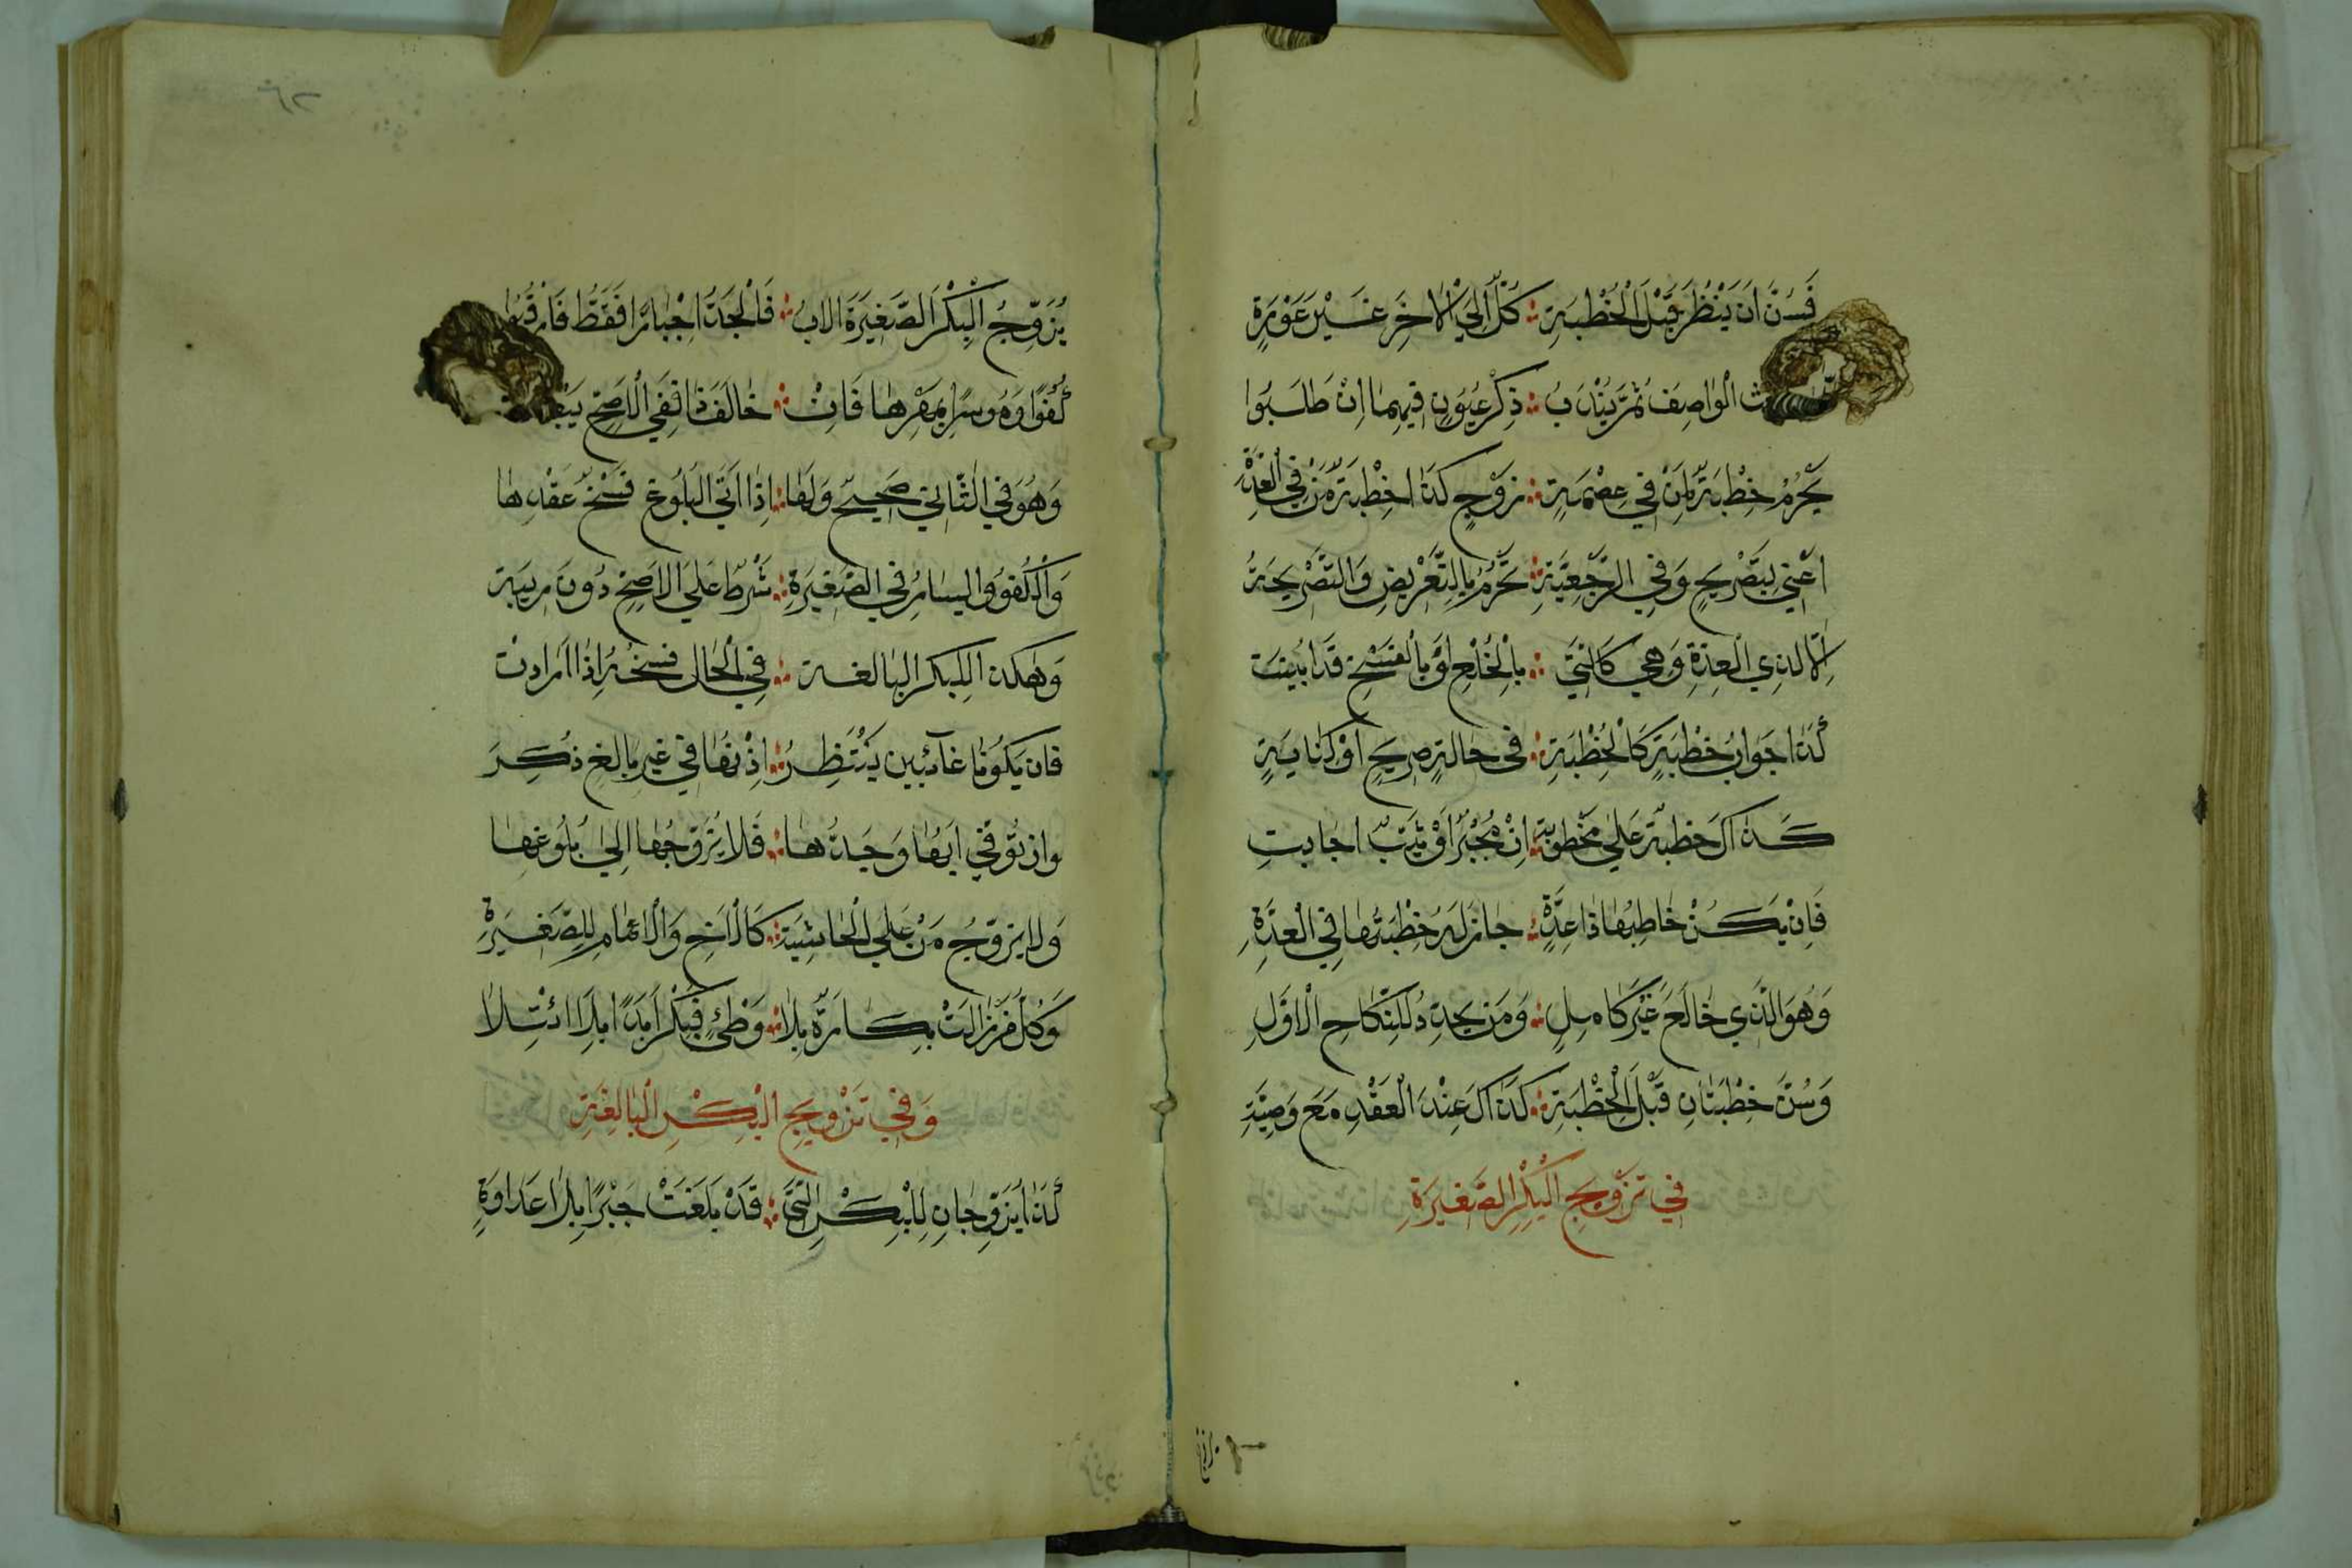 فَسُنَّ اَنْ يَنْظُرَ قَبْلَ الْخُطْبَةِ ؞ كُلٌّ اِلَى الْاٰخَرِ غَيْرَ عَوْرَةٍ
الْوٰاصِفَ ثُمَّ يُنْدَبُ ؞ ذِكْرُ عُيُوبٍ فِيهِمٰا اِنْ طَلَبُوا
يَحْرُمُ خِطْبَةٌ لِمَنْ فِي عِصْمَةٍ ؞ زَوْجٍ كَذٰا خِطْبَةُ مَنْ فِي الْعِدَّةِ
اَعْنِي بِتَصْرِيحٍ وَفِي الرَّجْعِيَّةِ ؞ تَحْرُمُ بِالتَّعْرِيضِ وَالتَّصْرِيحَةُ
اِلَّا لِذِي الْعِدَّةِ وَهِيَ كَالَّتِي ؞ بِالْخُلْعِ اَوْ بِالْفَسْخِ قَدْ اُبِينَتِ
كَذٰا جَوٰابُ خِطْبَةٍ كَالْخِطْبَةِ ؞ فِي حٰالَةٍ صَرِيحٍ اَوْ كِنٰايَةٍ
كَذٰاكَ خِطْبَةٌ عَلٰى مَخْطُوبَةٍ ؞ اِنْ مُجْبَرٌ اَوْ ثَيِّبٌ اَجٰابَتِ
فَاِنْ يَكُنْ خٰاطِبُهٰا ذٰا عِدَّةٍ ؞ جٰازَ لَهُ خِطْبَتُهٰا فِي الْعِدَّةِ
وَهُوَ الَّذِي خٰالَعَ غَيْرَ حٰامِلٍ ؞ وَمَنْ يُجَدِّدُ لِلنِّكٰاحِ الْاَوَّلِ
وَسُنَّ خُطْبَتٰانِ قَبْلَ الْخِطْبَةِ ؞ كَذٰاكَ عِنْدَ الْعَقْدِ مَعَ وَصِيَّةِ
فِي تَزْوِيجِ الْبِكْرِ الصَّغِيرَةِ
يُزَوِّجُ الْبِكْرَ الصَّغِيرَةَ الْاَبُ ؞ فَالْجَدُّ اِجْبٰارًا فَقَطْ فَارْقُبُوا
كُفُوًا وَمُوسِرًا بِمَهْرِهٰا فَاِنْ ؞ خٰالَفَ ذٰا فَفِي الْاَصَحِّ
وَهُوَ فِي الثّٰانِي صَحِيحٌ وَلَهٰا ؞ اِذٰا اَتَى الْبُلُوغُ فَسْخُ عَقْدِهٰا
وَالْكُفُوُ وَالْيَسٰارُ فِي الصَّغِيرَةِ ؞ شَرْطٌ عَلَى الْاَصَحِّ دُونَ رِيبَةِ
وَهٰكَذٰا لِلْبِكْرِ الْبٰالِغَةِ ؞ فِي الْحٰالِ فَسْخُهُ اِذٰا اَرٰادَتْ
فَاِنْ يَكُونٰا غٰائِبَيْنِ يُنْتَظَرُ ؞ اِذْنُهٰا فِي غَيْرِ بٰالِغٍ ذُكِرَ
وَاِنْ تُوُفِّيَ اَبُهٰا وَجَدُّهٰا ؞ فَلٰا يُزَوِّجُهٰا اِلٰى بُلُوغِهٰا
وَلٰا يُزَوِّجُ مَنْ عَلَى الْحٰاشِيَةِ ؞ كَالْاَخِ وَالْاَعْمٰامِ لِلصَّغِيرَةِ
وَكُلُّ مَنْ زٰالَتْ بَكٰارَةٌ بِلٰا ؞ وَطْئٍ فَبِكْرٌ اَبَدًا
وَفِي تَزْوِيجِ الْبِكْرِ الْبٰالِغَةِ
كَذٰا يُزَوِّجٰانِ لِلْبِكْرِ الَّتِي ؞ قَدْ بَلَغَتْ جَبْرًا بِلٰا عَدٰاوَةِ